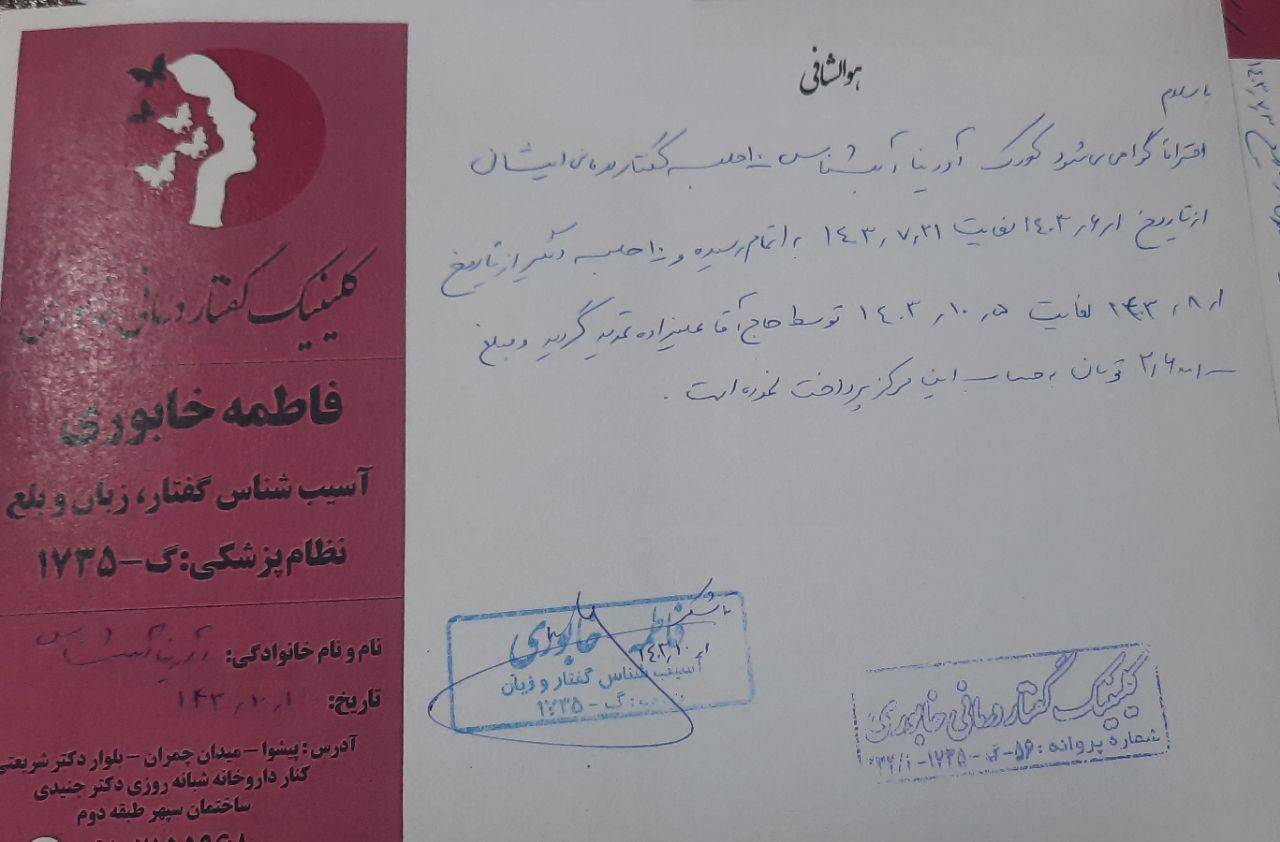 هوالشافی
با سلام
احتراماً گواهی می‌شود کودک آدرینا آتشناس ۱۰ جلسه گفتاردرمانی ایشان
از تاریخ ۱۴۰۳٫۶٫۱ لغایت ۱۴۰۳٫۷٫۲۱ به اتمام رسیده و ۱۰ جلسه دیگر از تاریخ
۱۴۰۳٫۸٫۱ لغایت ۱۴۰۳٫۱۰٫۵ توسط حاج آقا علیزاده تمدید گردید و مبلغ
تومان به حساب این مرکز پرداخت نموده است.
با تشکر
فاطمه خابوری
آسیب شناس گفتار و زبان
گ - ۱۷۳۵
کلینیک گفتاردرمانی خابوری
شماره پروانه :
کلینیک گفتار درمانی خابوری
فاطمه خابوری
آسیب شناس گفتار، زبان و بلع
نظام پزشکی: گ-۱۷۳۵
نام و نام خانوادگی:
تاریخ: ۱۴۰۳٫۱۰٫۱
آدرس: پیشوا - میدان چمران - بلوار دکتر شریعتی
کنار داروخانه شبانه روزی دکتر جنیدی
ساختمان سپهر طبقه دوم